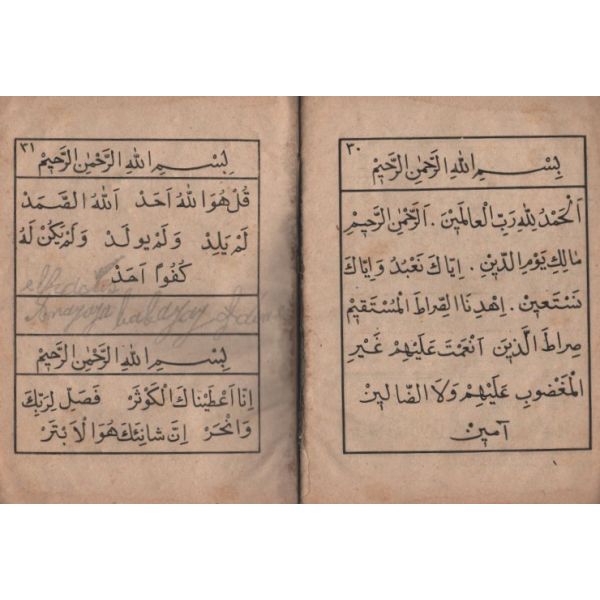 ٣٠
بِسْمِ اللهِ الرَّحْمٰنِ الرَّحِيْمِ
اَلْحَمْدُ لِلّٰهِ رَبِّ الْعَالَمِيْنَ . اَلرَّحْمٰنِ الرَّحِيْمِ
مَالِكِ يَوْمِ الدِّيْنِ . اِيَّاكَ نَعْبُدُ وَ اِيَّاكَ
نَسْتَعِيْنُ . اِهْدِنَا الصِّرَاطَ الْمُسْتَقِيْمَ
صِرَاطَ الَّذِيْنَ اَنْعَمْتَ عَلَيْهِمْ غَيْرِ
الْمَغْضُوبِ عَلَيْهِمْ وَلَا الضَّالِّيْنَ
آمِيْنَ
٣١
بِسْمِ اللهِ الرَّحْمٰنِ الرَّحِيْمِ
قُلْ هُوَ اللهُ اَحَدٌ اَللهُ الصَّمَدُ
لَمْ يَلِدْ وَلَمْ يُولَدْ وَلَمْ يَكُنْ لَهُ
كُفُوًا اَحَدٌ
بِسْمِ اللهِ الرَّحْمٰنِ الرَّحِيْمِ
اِنَّا اَعْطَيْنَاكَ الْكَوْثَرَ فَصَلِّ لِرَبِّكَ
وَانْحَرْ اِنَّ شَانِئَكَ هُوَ الْاَبْتَرُ